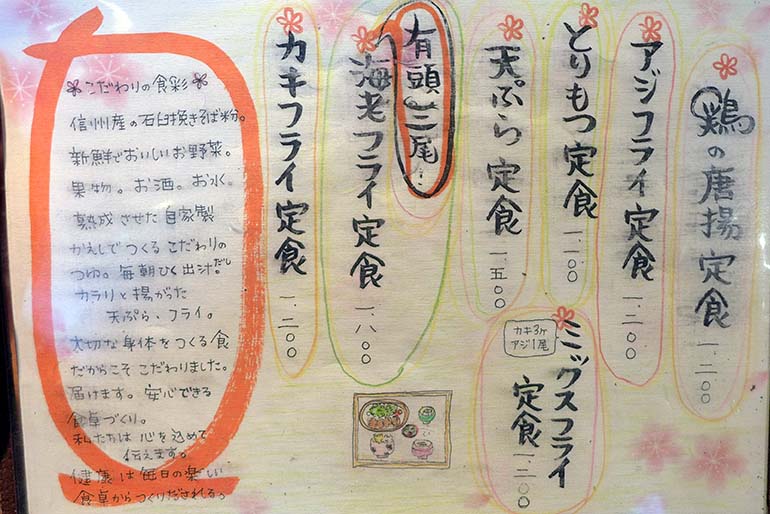 鶏の唐揚定食 一、二〇〇
アジフライ定食 一、二〇〇
とりもつ定食 一、一〇〇
ミックスフライ
定食 一、二〇〇
カキ3ヶ
アジ1尾
天ぷら定食 一、五〇〇
有頭(二尾)
海老フライ定食 一、八〇〇
カキフライ定食 一、二〇〇
こだわりの食彩
信州産の石臼挽きそば粉。
新鮮でおいしいお野菜。
果物。お酒。お水。
熟成させた自家製
かえしでつくるこだわりの
つゆ。毎朝ひく出汁。だし
カラリと揚がった
天ぷら、フライ。
大切な身体をつくる食
だからこそこだわりました。
届けます。安心できる
食卓づくり。
私たちは心を込めて
伝えます。
健康は毎日の楽しい
食卓からつくりだされる。